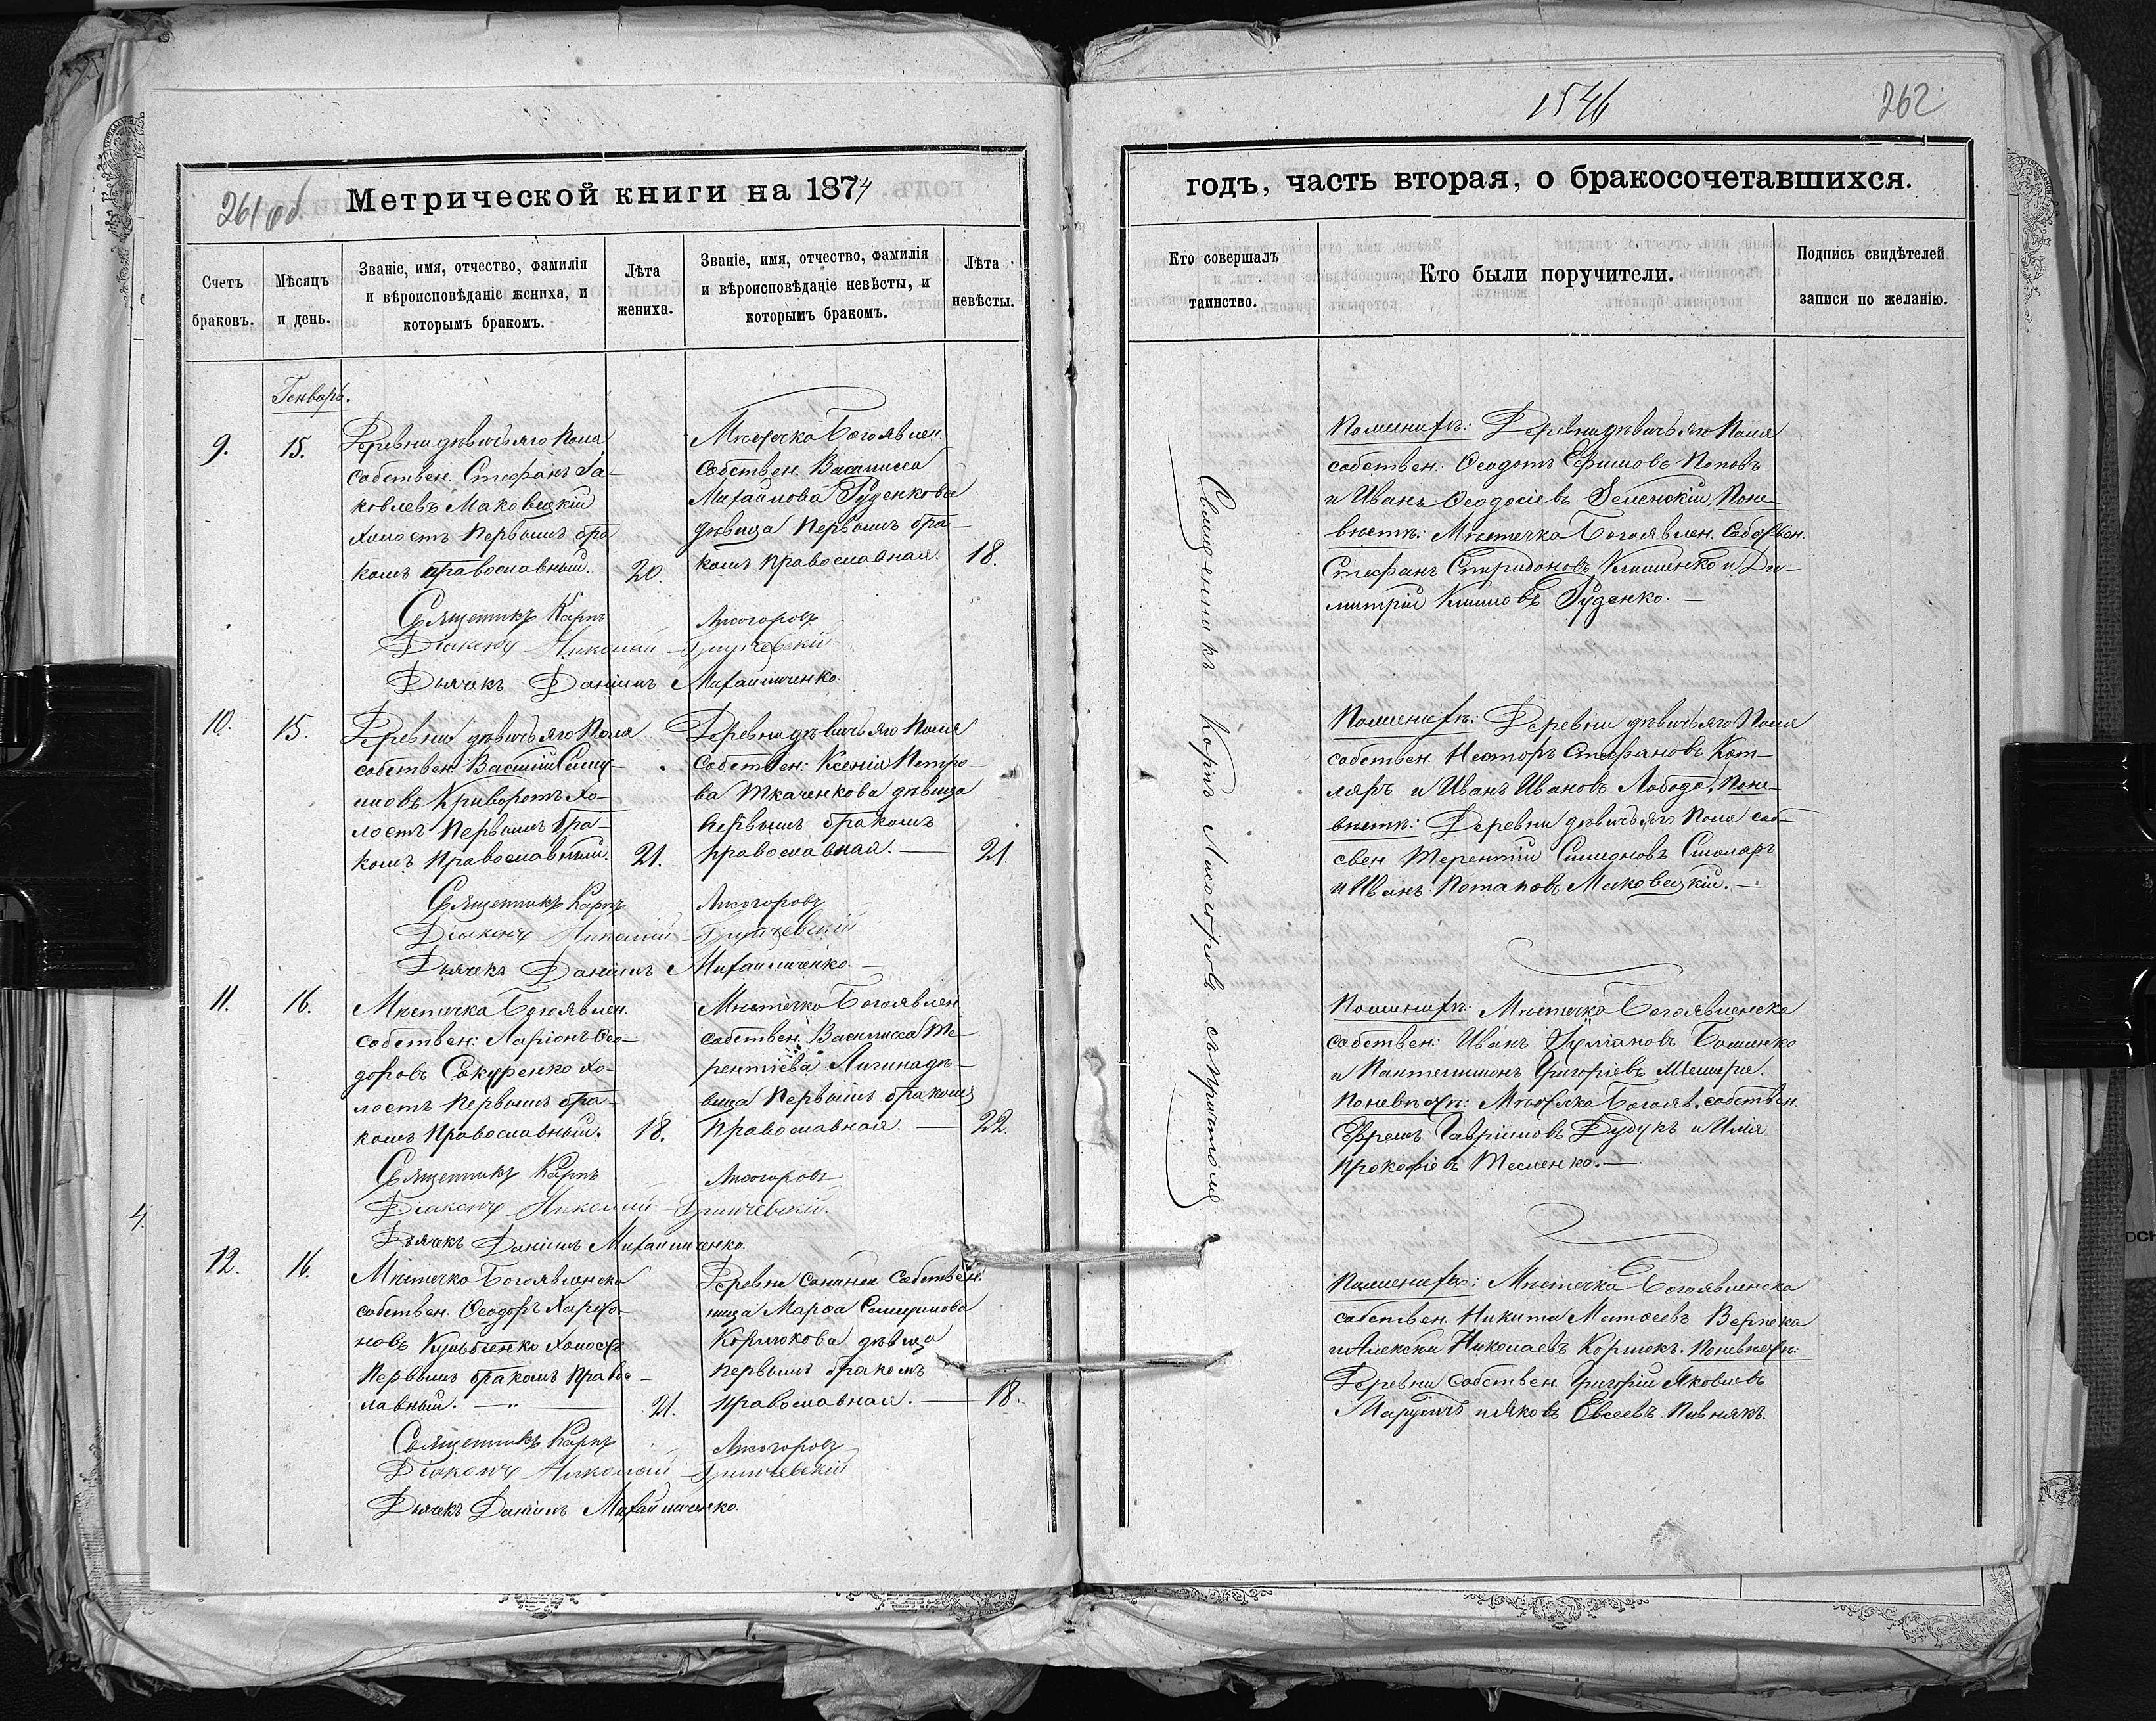 261 об
Метрической книги на 1874
Счетъ браковъ.
Мѣсяцъ и день.
Званіе, имя, отчество, фамилія
и вѣроисповѣданіе жениха, и
которымъ бракомъ.
Лѣта жениха.
Званіе, имя, отчество, фамилія
и вѣроисповѣданіе невѣсты, и
которымъ бракомъ.
Лѣта невѣсты.
Генварь.
9.
15.
Деревни дѣвичьяго Поля
собствен. Стефанъ Іа-
ковлевъ Маковецкій
холостъ первымъ бра
комъ православный.
20.
Мѣстечка Богоявлен.
собствен. Васлисса
Михайлова Руденкова
дѣвица первымъ бра-
комъ православная.
18.
Священникъ Карпъ Лисогоровъ
Діаконъ Николай
Дьячекъ Даніилъ Михайличенко.
10.
15.
Деревни дѣвичьяго Поля
собствен. Василій Симу-
иловъ Криворотъ хо-
лостъ первымъ бра-
комъ православный.
21.
Деревни дѣвичьяго Поля
собствен: Ксенія Петро-
ва Ткаченкова дѣвица
первымъ бракомъ
православная. —
21.
Священникъ Карпъ Лисогоровъ
Діаконъ Николай
Дьячекъ Даніилъ Михайличенко. —
11.
16.
Мѣстечка Богоявлен.
собствен: Ларіонъ Ѳео-
доровъ Сокуренко хо-
лостъ первымъ бра-
комъ православный.
18.
Мѣстечка Богоявлен.
собствен. Василисса Те-
рентіева дѣ-
вица первымъ бракомъ
православная. —
22.
Священникъ Карпъ Лисогоровъ
Діаконъ Николай
Дьячекъ Даніилъ Михайличенко.
4.
12.
16.
Мѣстечка Богоявленска
собствен. Ѳеодоръ Харито-
новъ холостъ
первымъ бракомъ право-
лавный. — " —
21.
Деревни собствен-
ница Марѳа
Кормюкова дѣвица
первымъ бракомъ
православная. —
18.
Священникъ Карпъ Лисогоровъ
Діаконъ Николай
Дьячекъ Даніилъ Михайличенко.
1546
262
годъ, часть вторая, о бракосочетавшихся.
Кто совершалъ таинство.
Кто были поручители.
Подпись свидѣтелей записи по желанію.
Священникъ Карпъ Лисогоровъ съ причтомъ
По женихѣ: Деревни дѣвичьяго Поля
собствен. Ѳеодотъ Ефимовъ Поповъ
и Иванъ Ѳеодосіевъ Зеленскій, По не-
вѣстѣ: Мѣстечка Богоявлен. собствен.
Стефанъ Спиридоновъ Клименко и Ди-
митрій Климовъ Руденко. —
По женихѣ: Деревни дѣвичьяго Поля
собствен. Несторъ Стефановъ Кот-
ляръ и Иванъ Ивановъ Лобода, По не-
вѣстѣ: Деревни дѣвичьяго Поля соб-
свен Терентій Симеоновъ Столяръ
и Иванъ Потаповъ Маковецкій. —
По женихѣ: Мѣстечка Богоявленска
собствен: Иванъ
и Пантелимонъ Григоріевъ
По невѣстѣ: Мѣстечка Богояв. собствен.
Ефремъ Гавріиловъ Дудукъ и Илія
Прокофіевъ Тесленко. —
По женихѣ: Мѣстечка Богоявленска
собствен. Никита Матѳеевъ Верпека
и Алексѣй Николаевъ Кормюкъ. По невѣстѣ:
Деревни собствен. Григорій Яковлевъ
и Яковъ Евсеевъ Пивнякъ.